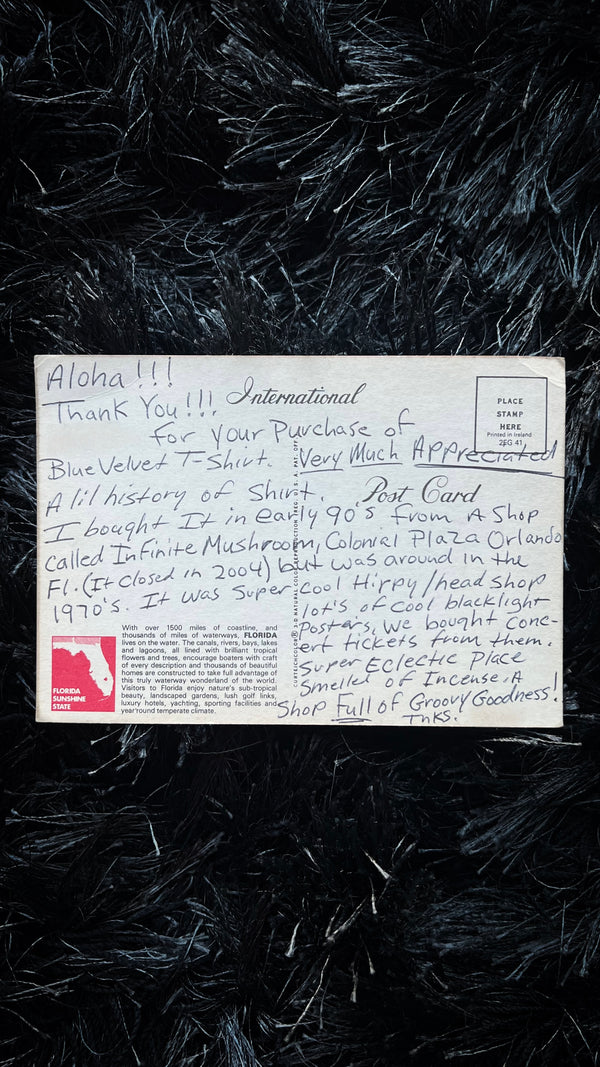 Aloha!!!
International
Thank You!!!
For Your Purchase of
Blue Velvet T-Shirt. Very Much Appreciated
A lil history of Shirt.
Post Card
I bought It in early 90's from A Shop
called Infinite Mushroom, Colonial Plaza Orlando
Fl. (It closed in 2004) but was around in the
1970's. It was Super cool Hippy/head shop
lot's of cool blacklight
Posters, We bought conc-
ert tickets from them.
Super Eclectic Place
Smelled of Incense. A
Shop Full of Groovy Goodness!
Tnks.
PLACE
STAMP
HERE
Printed in Ireland
2EG 41
CURTEICHCOLOR® 3-D NATURAL COLOR REPRODUCTION (REG. U.S.A. PAT. OFF.)
FLORIDA
SUNSHINE
STATE
With over 1500 miles of coastline, and
thousands of miles of waterways, FLORIDA
lives on the water. The canals, rivers, bays, lakes
and lagoons, all lined with brilliant tropical
flowers and trees, encourage boaters with craft
of every description and thousands of beautiful
homes are constructed to take full advantage of
this truly waterway wonderland of the world.
Visitors to Florida enjoy nature's sub-tropical
beauty, landscaped gardens, lush golf links,
luxury hotels, yachting, sporting facilities and
year'round temperate climate.